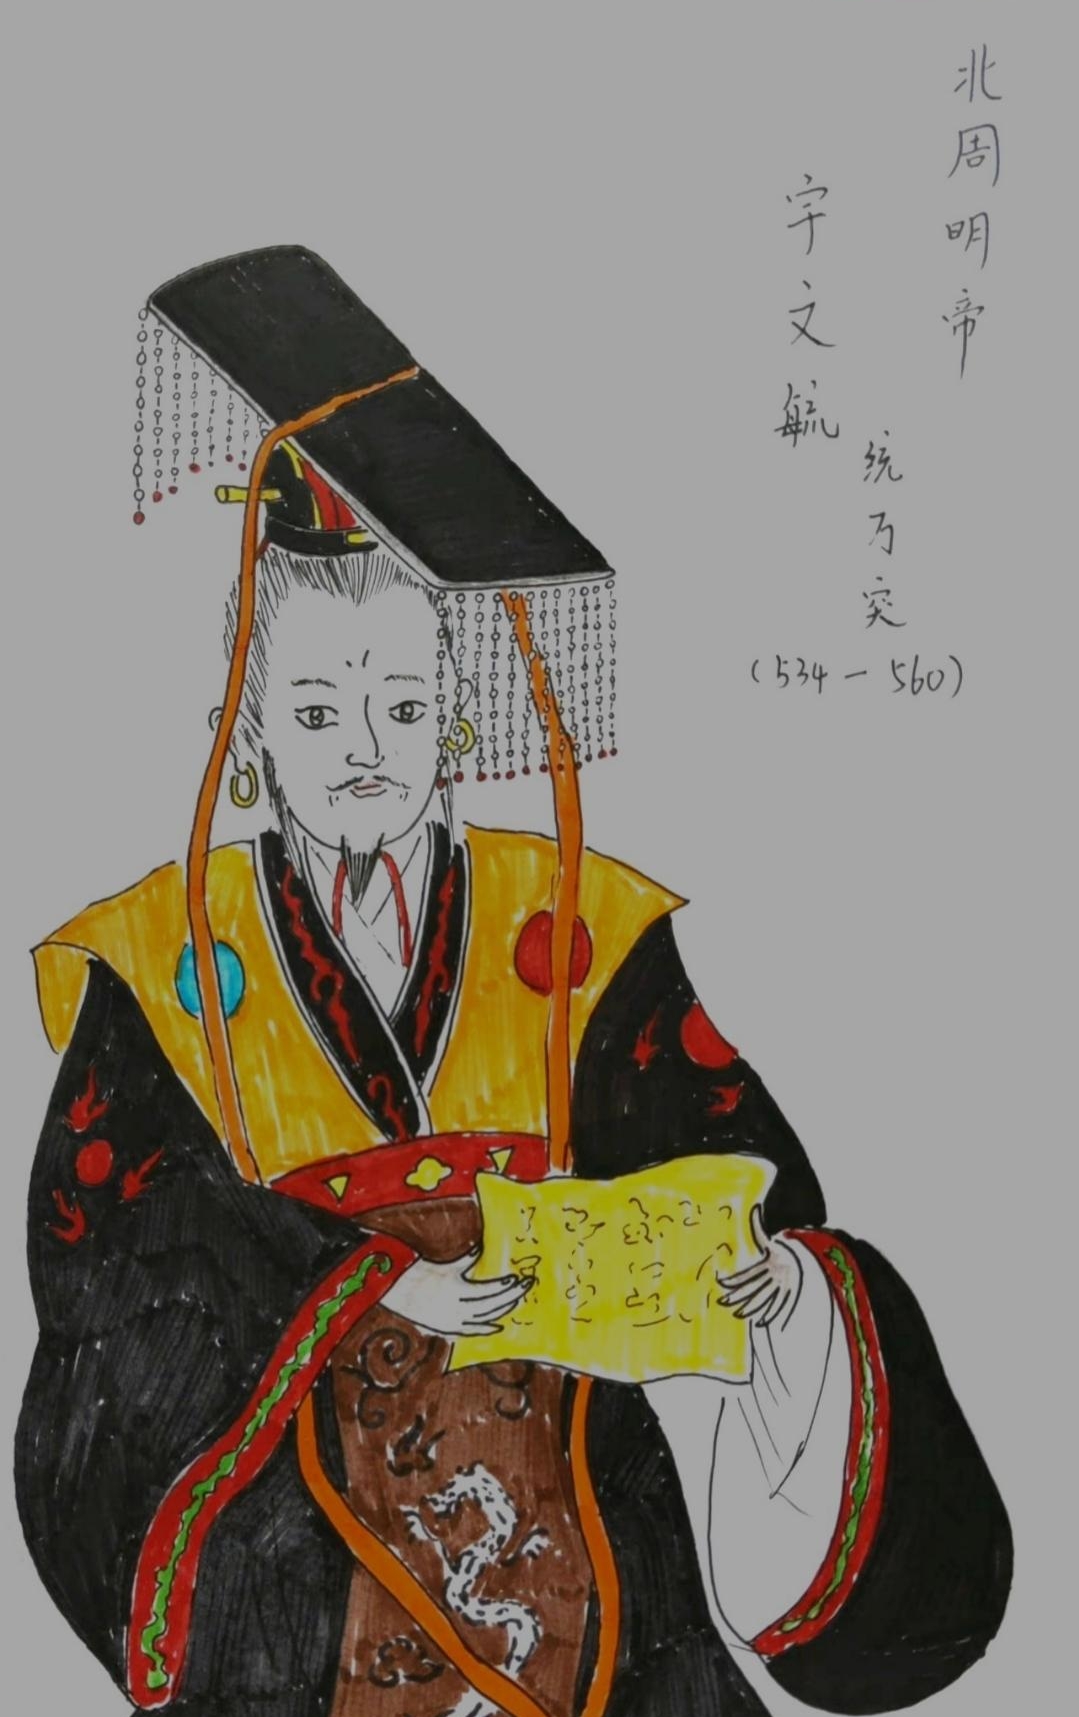 北周明帝
宇文毓
统万突
(534-560)